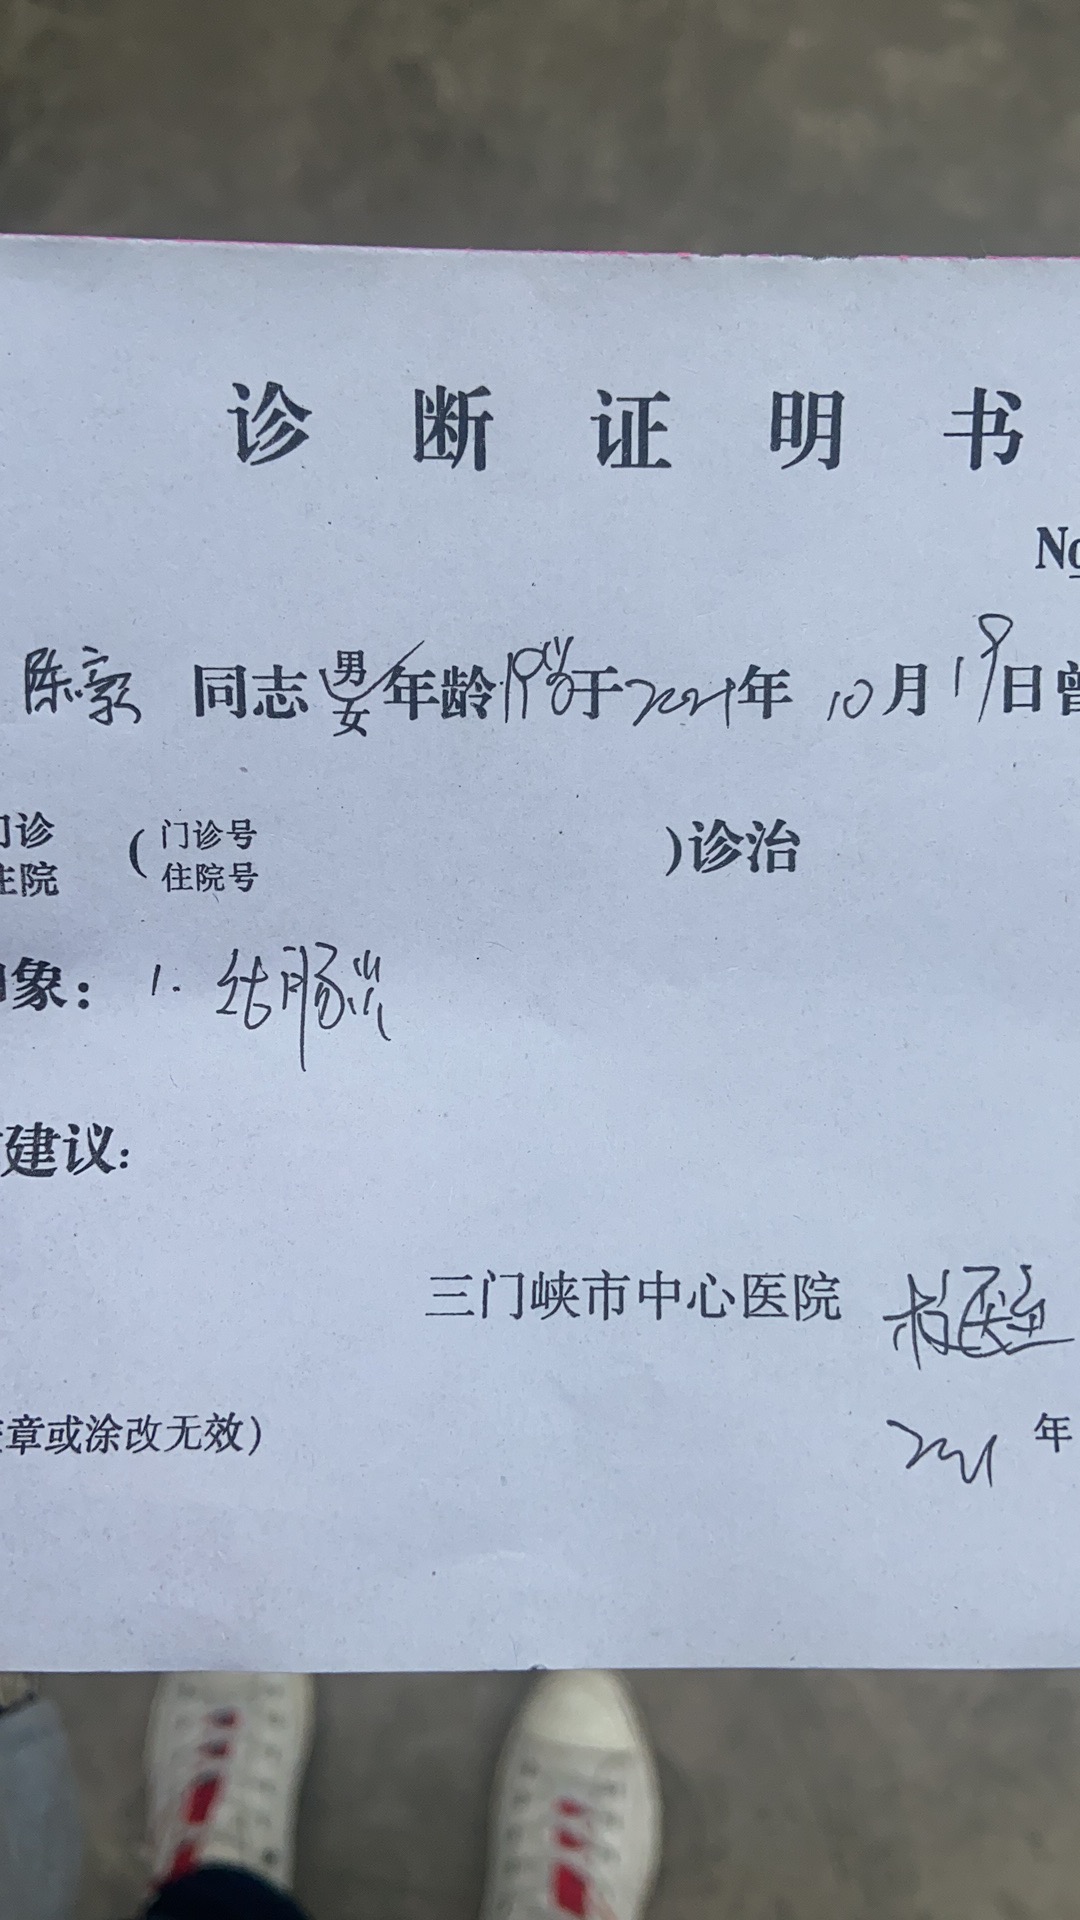 诊断证明书
No
陈豪 同志 男 女 年龄 19岁 于 2021年 10月 19日曾
门诊 住院 ( 门诊号 住院号 )诊治
印象: 1. 结肠炎
建议:
三门峡市中心医院
章或涂改无效)
2021 年